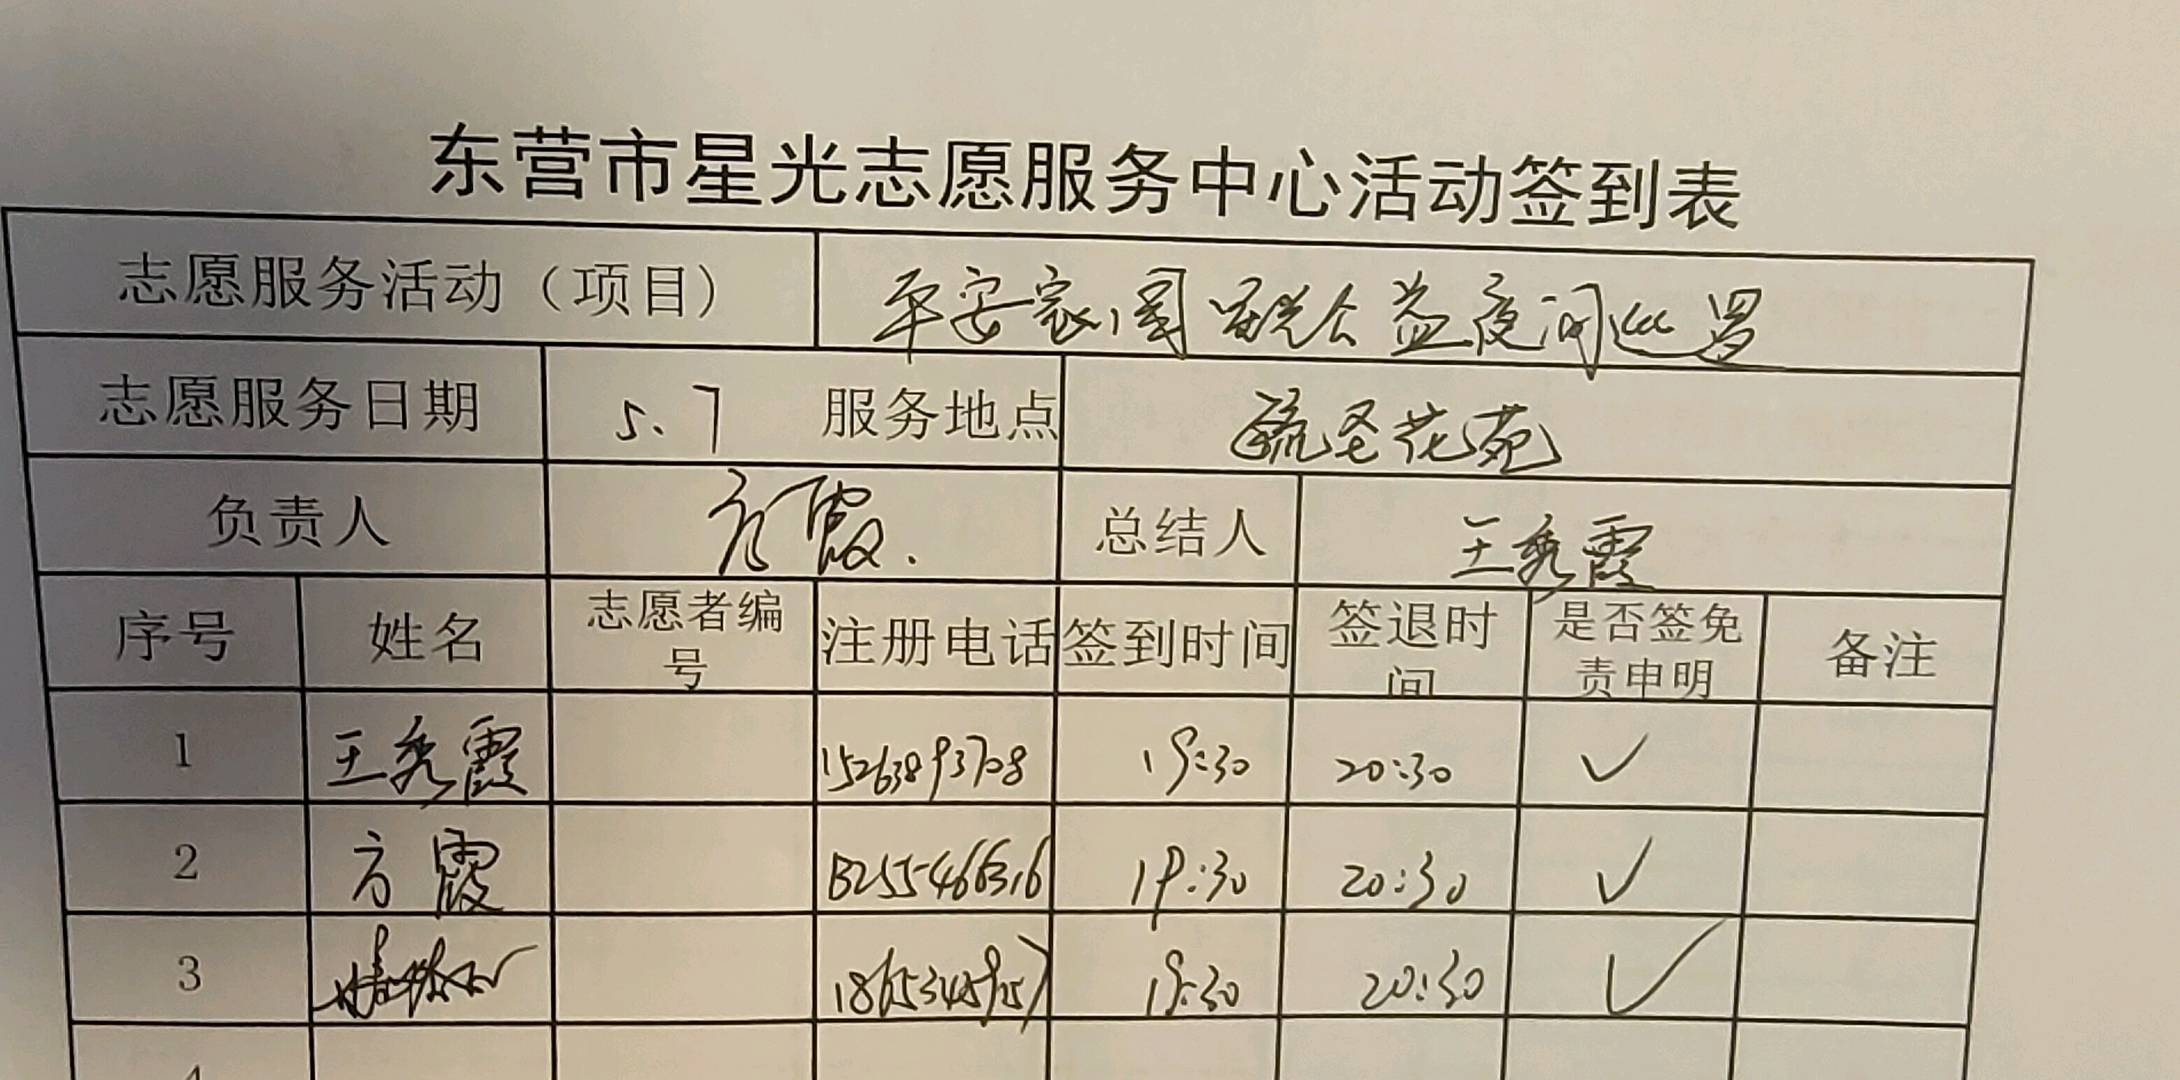 东营市星光志愿服务中心活动签到表
志愿服务活动（项目） 平安家园 公益夜间巡罗
志愿服务日期 5.7 服务地点 花苑
负责人 方霞. 总结人 王秀霞
序号 姓名 志愿者编号 注册电话 签到时间 签退时间 是否签免责申明 备注
1 王秀霞 15263893708 19:30 20:30 ✓
2 方霞 13255466316 19:30 20:30 ✓
3 19:30 20:30 ✓
4